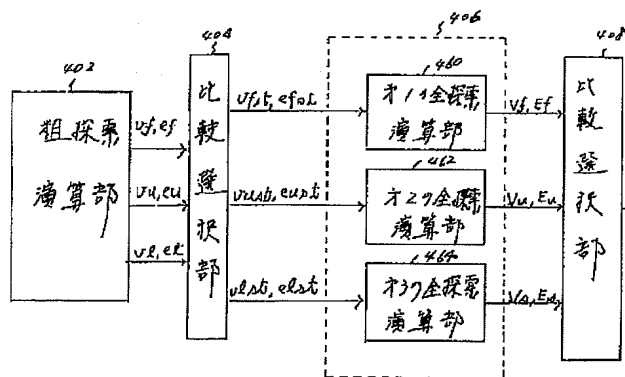 402
粗探索
演算部
vf, ef
vu, eu
vl, el
404
比較選択部
vfst, efst
vust, eust
vlst, elst
406
460
オ1の全探索
演算部
462
オ2の全探索
演算部
464
オ3の全探索
演算部
Vf, Ef
Vu, Eu
408
比較選択部